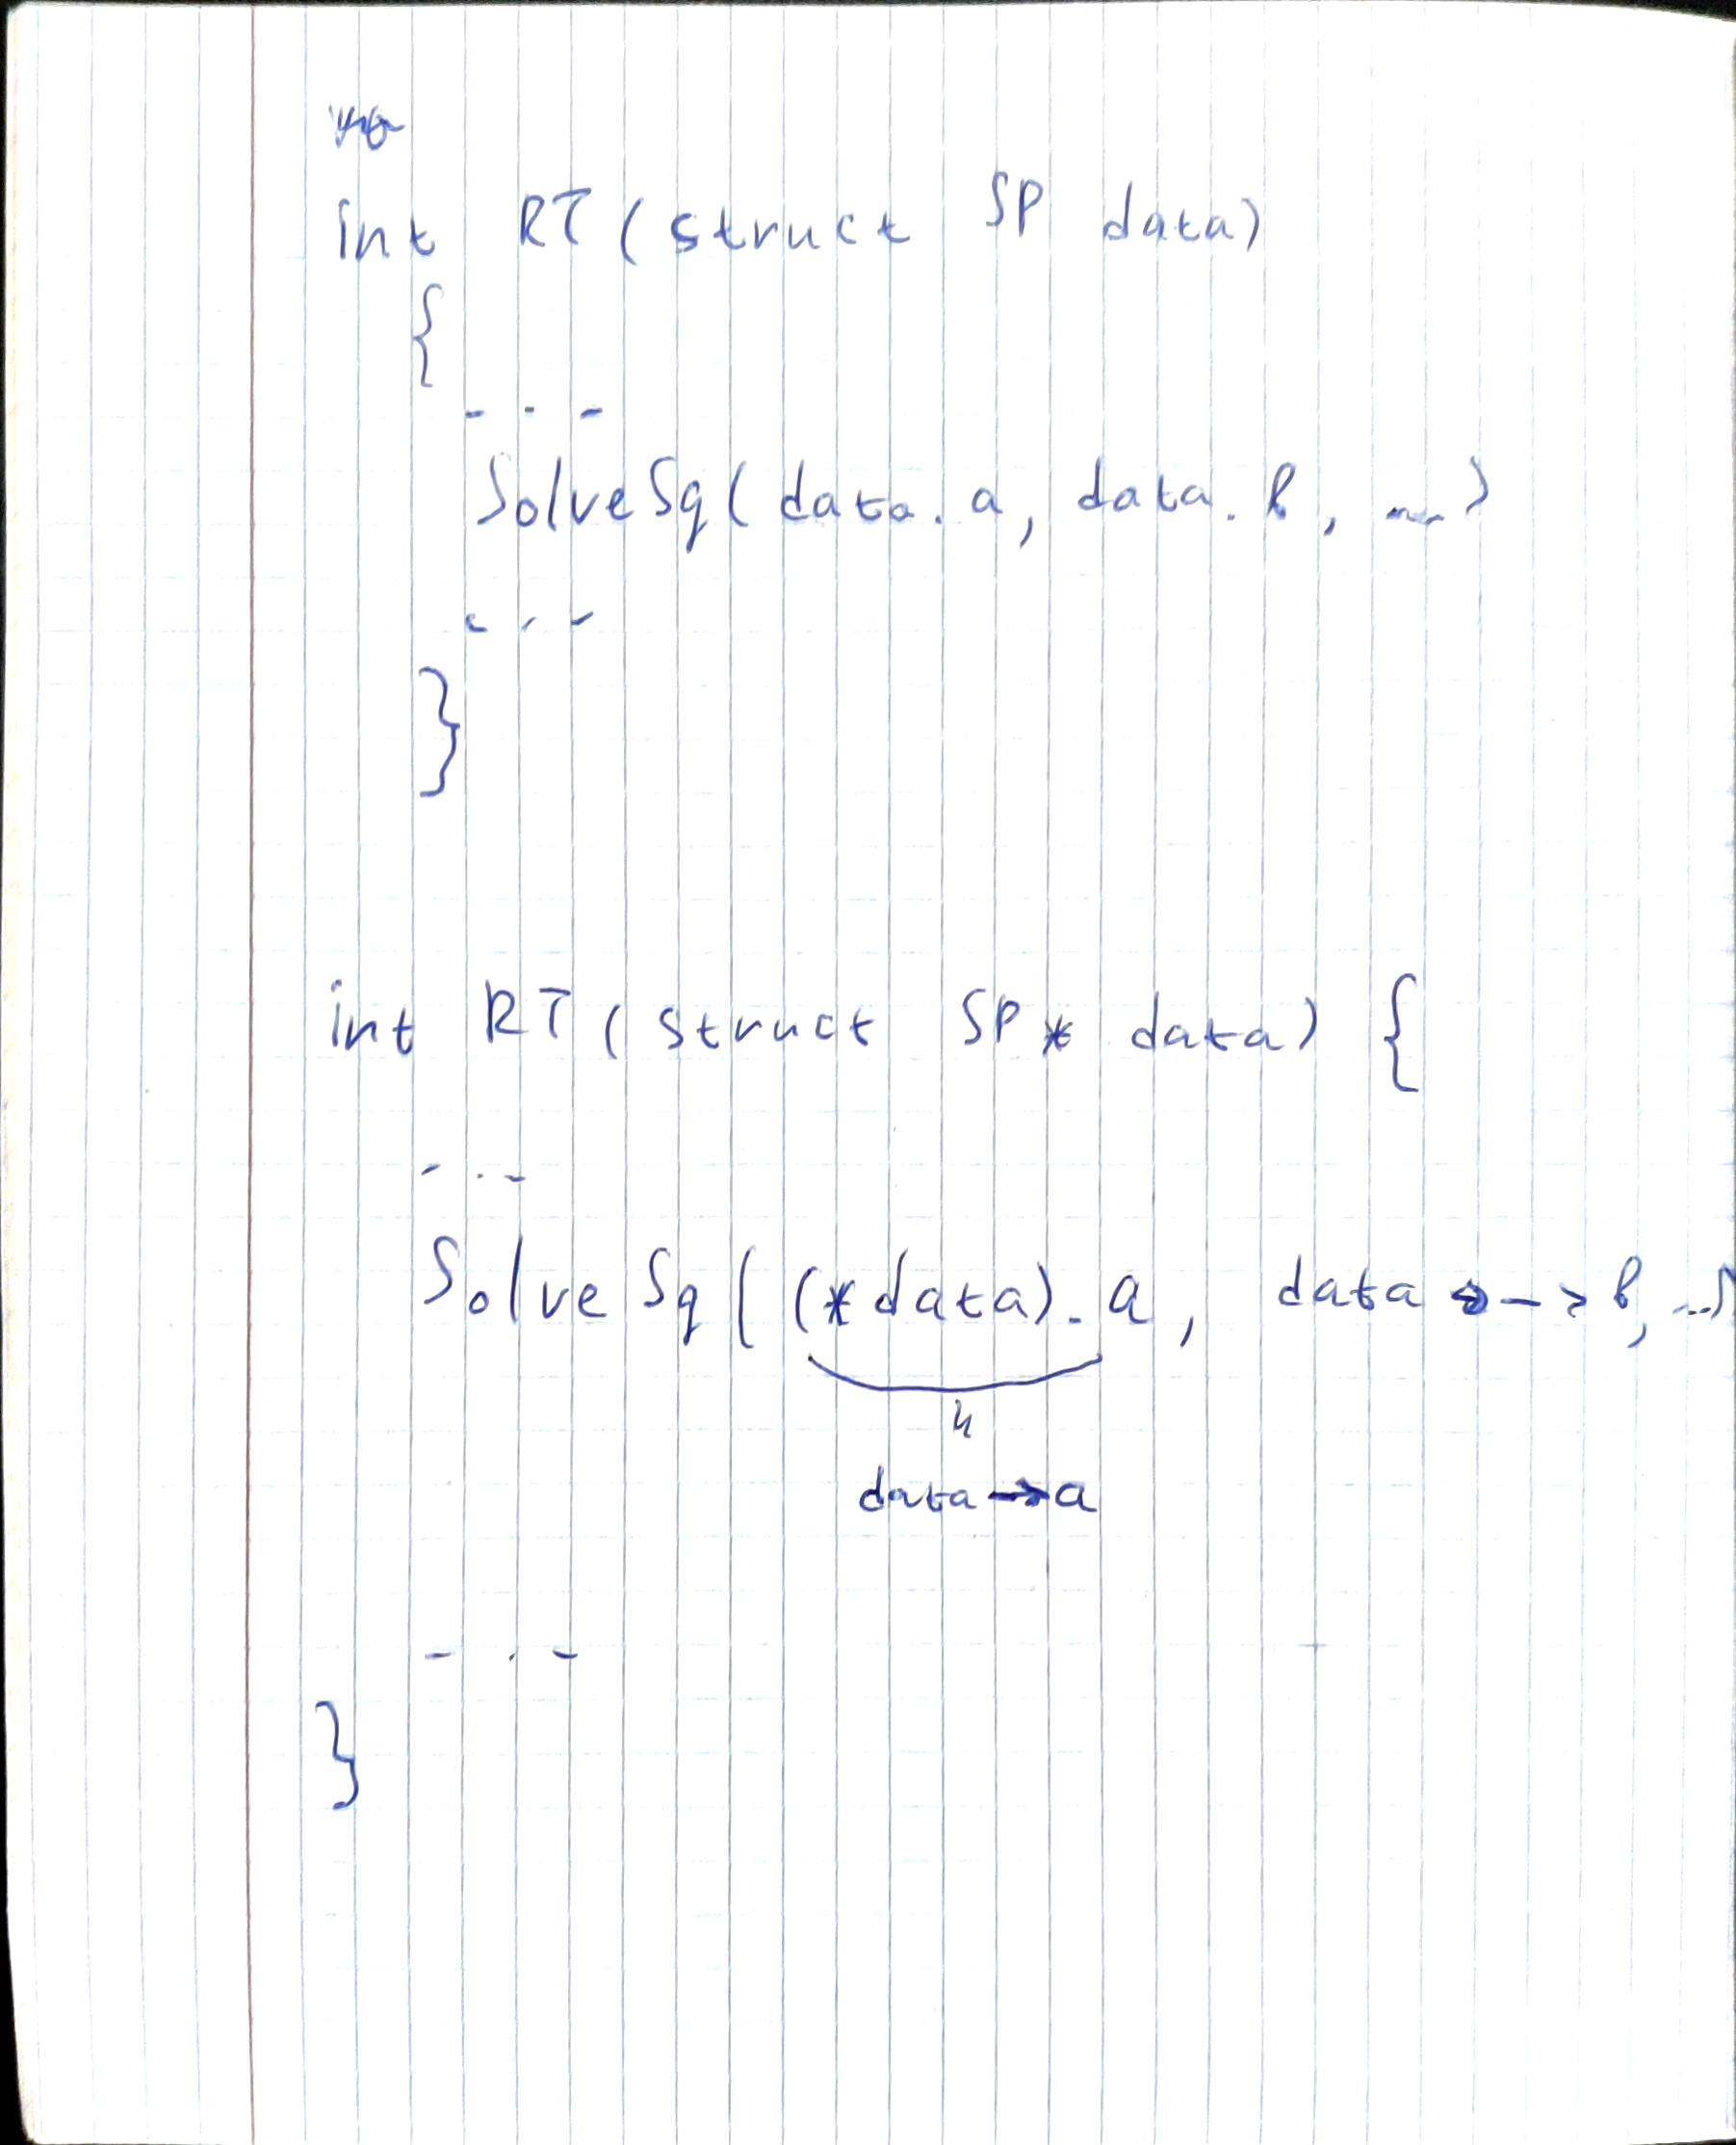 int RT (struct SP data)
{
. . .
SolveSq( data.a, data.b, ...)
. . .
}
int RT (struct SP* data) {
. . .
SolveSq((*data).a, data->b, ...)
"
data->a
. . .
}